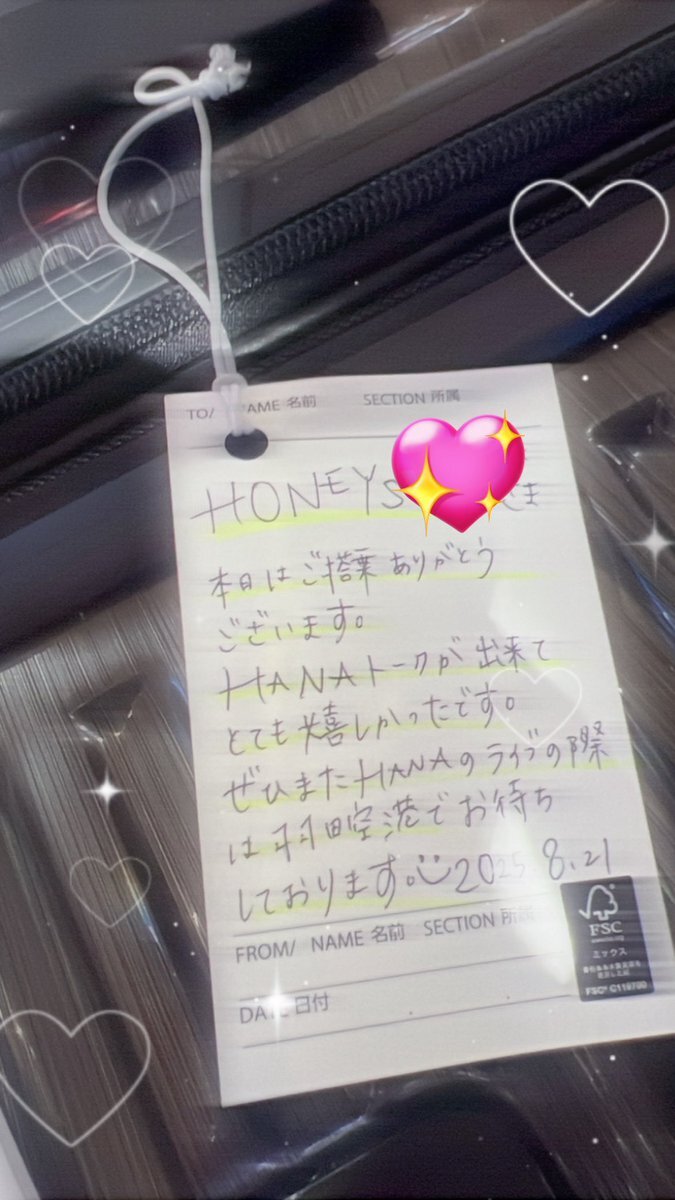 TO/ NAME 名前 SECTION 所属
HONEYS さま
本日はご搭乗ありがとう
ございます。
HANAトークが出来て
とても嬉しかったです。
ぜひまたHANAのライブの際
は羽田空港でお待ち
しております。2025.8.21
FROM/ NAME 名前 SECTION 所属
DATE 日付
FSC
ミックス
FSC® C119790